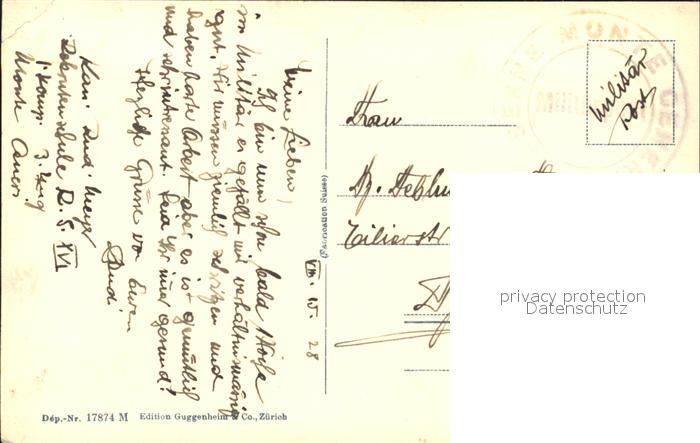 VIII. 15. 28
Meine Lieben!
Ich bin nun schon bald 1 Woche
im Militär es gefällt mir verhältnismässig
gut. Wir müssen ziemlich schwitzen und
haben harte Arbeit aber es ist gemütlich
und sehr interessant. Seid Ihr immer gesund?
Herzliche Grüsse von Euerm
Rudi
Kan. Rud. Meyer
Rekrutenschule R. S. XVI
1. Komp. 3. Zug
Monte Ceneri
Militär
Post
MONTE CENERI
Frau
Zilierstr
(Fabrication Suisse)
privacy protection
Datenschutz
Dép.-Nr. 17874 M Edition Guggenheim & Co., Zürich